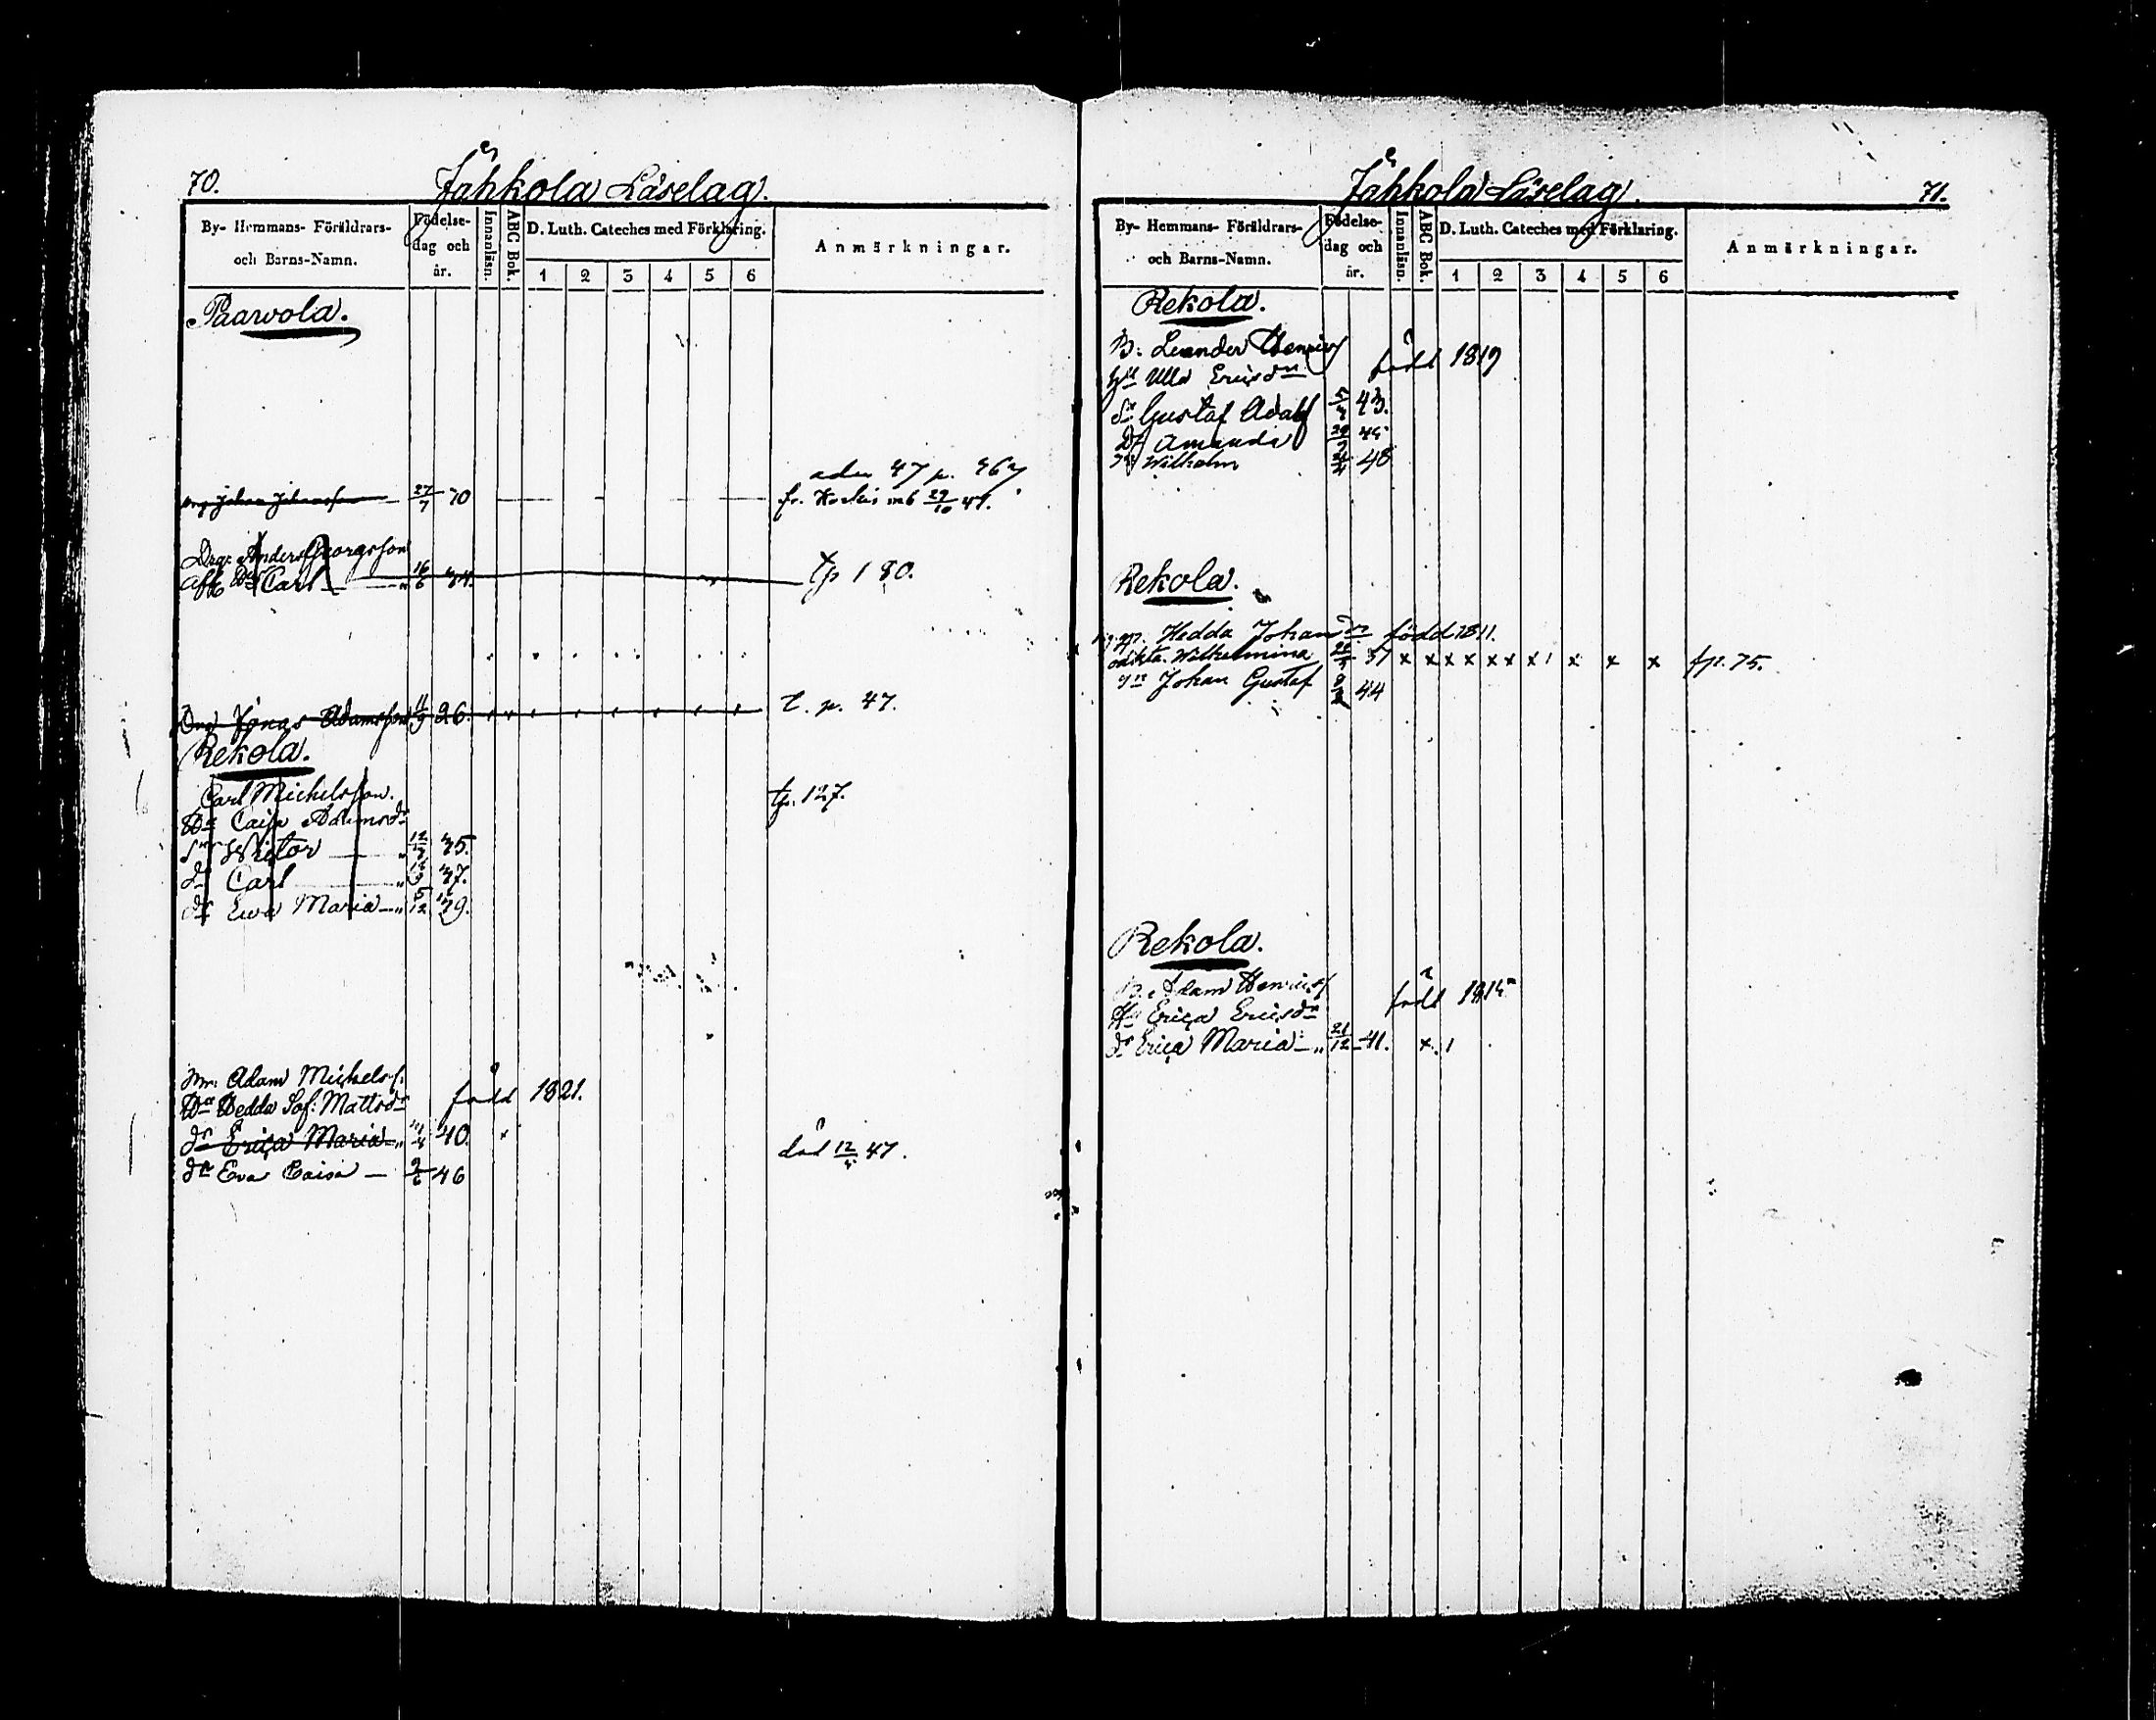 70.
Jåhkola Läselag.
By- Hemmans- Föräldrars- och Barns-Namn.
Födelse-dag och år.
Innanläsn.
ABC Bok.
D. Luth. Cateches med Förklaring.
1 2 3 4 5 6
Anmärkningar.
Paavola.
47 p. 467
Johan Johansson 27/7 70 fr. 29/10 47.
Drg: Anders Georgsson
Carl 16/6 44. tp 180.
Drg Jonas Adamsson 11/9 26. t. p. 47.
Rekola.
Carl Michelsson. tp. 127.
Hu Caisa Adamsdr
Sn Victor 45.
dn Carl 47.
dr Ewa Maria 5/12 49.
Adam Michelss:
Hu Hedda Sof: Mattsdr född 1821.
dr Erica Maria 40. x död 12/4 47.
dr Eva Caisa 9/6 46
Jåhkola Läselag.
71.
By- Hemmans- Föräldrars- och Barns-Namn.
Födelse-dag och år.
Innanläsn.
ABC Bok.
D. Luth. Cateches med Förklaring.
1 2 3 4 5 6
Anmärkningar.
Rekola.
B: Leander Henrics
Hu Ulla Ericsdr född 1819
Sn Gustaf Adolf 43.
Dr Amanda 45
Sn Wilhelm 48
Rekola.
Hedda Johansdr född 1811.
oäkta. Wilhelmina 37 x x x x x x x 1 x x x tp. 75.
Sn Johan Gustaf 44
Rekola.
B: Adam Henricss
Hu Erica Ericsdr född 1815
dr Erica Maria 21/12 41. x. 1